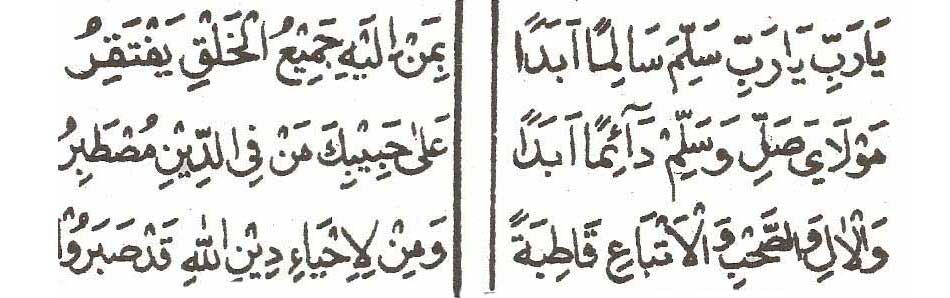 يَارَبِّ يَارَبِّ سَلِّمْ سَالِمًا اَبَدًا بِمَنْ اِلَيْهِ جَمِيْعُ الْخَلْقِ يَفْتَقِرُ
مَوْلَايَ صَلِّ وَسَلِّمْ دَآئِمًا اَبَدًا عَلٰى حَبِيْبِكَ مَنْ فِى الدِّيْنِ مُصْطَبِرُ
وَالْاٰلِ وَالصَّحْبِ وَالْاَتْبَاعِ قَاطِبَةً وَمِنْ لِاِحْيَاءِ دِيْنِ اللهِ قَدْ صَبَرُوْا